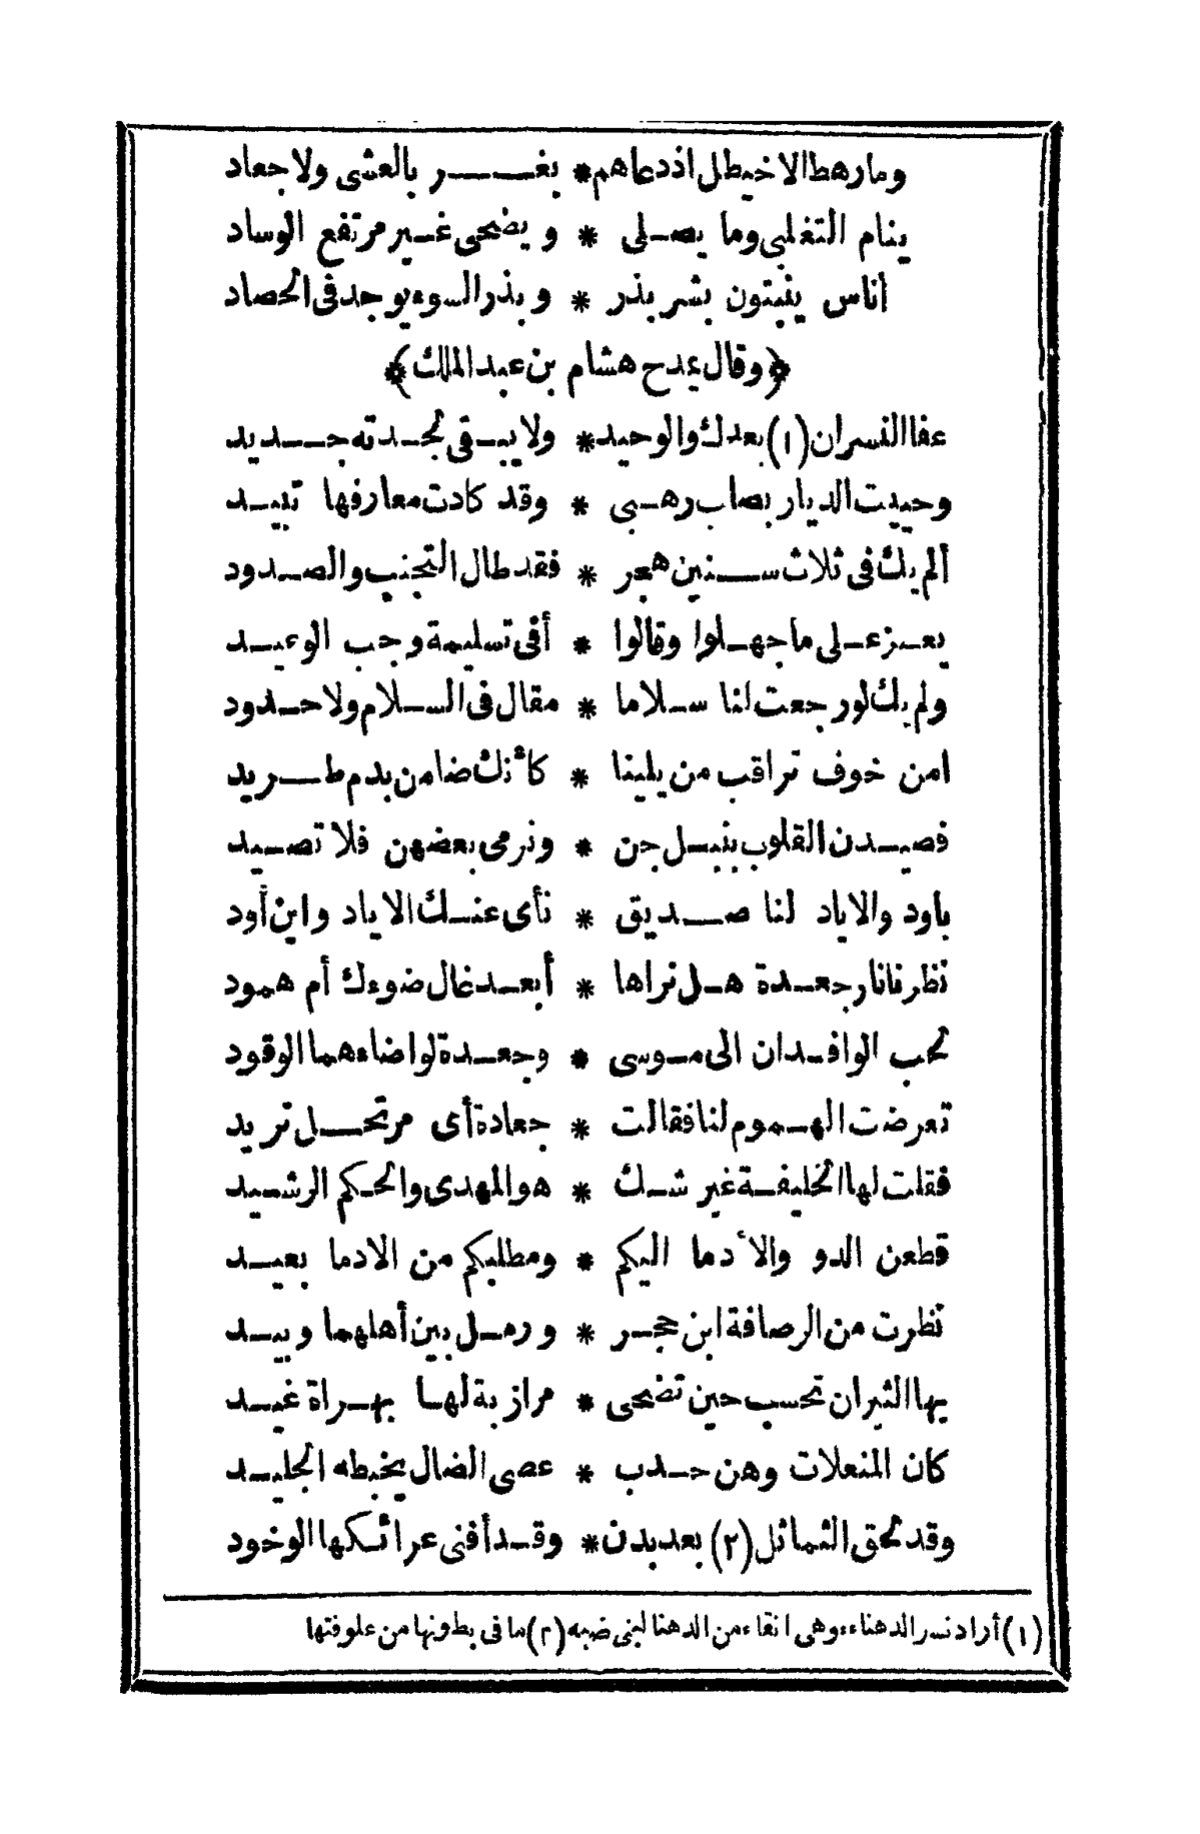 ومارهط الاخيطل اذدعاهم * بغر بالعشى ولاجعاد
ينام التغلبى وما يصلى * ويضحى غير مرتفع الوساد
أناس ينبتون بشر بذر * وبذر السوء يوجد فى الحصاد
﴿وقال يمدح هشام بن عبد الملك﴾
عفا النسران (١) بعدك والوحيد * ولا يبقى لجدته جديد
وحييت الديار بصاب رهبى * وقد كادت معارفها تبيد
ألم يك فى ثلاث سنين هجر * فقد طال التجنب والصدود
يعز على ما جهلوا وقالوا * أفى تسليمة وجب الوعيد
ولم يك لو رجعت لنا سلاما * مقال فى السلام ولا حدود
امن خوف تراقب من يلينا * كأنك ضامن بدم طريد
فصيدن القلوب بنبل جن * ونرمى بعضهن فلا تصيد
باود والاياد لنا صديق * نأى عنك الاياد واين أود
نظرنا نار جعدة هل نراها * أبعد غال ضوءك أم همود
لحب الوافدان الى موسى * وجعدة لو اضاءهما الوقود
تعرضت الهموم لنا فقالت * جعادة أى مرتحل تريد
فقلت لها الخليفة غير شك * هو المهدى والحكم الرشيد
قطعن الدو والأدما اليكم * ومطلبكم من الادما بعيد
نظرت من الرصافة اين حجر * ورمل بين أهلهما وبيد
بها الثيران تحسب حين تضحى * مرازبة لها بهراة غيد
كان المنعلات وهن حدب * عصى الضال يخبطه الجليد
وقد لحق الثمائل (٢) بعد بدن * وقد أفنى عرائكها الوخود
(١) أراد نسر الدهناء وهى انقاء من الدهنا لبنى ضبه (٢) ما فى بطونها من علوفتها